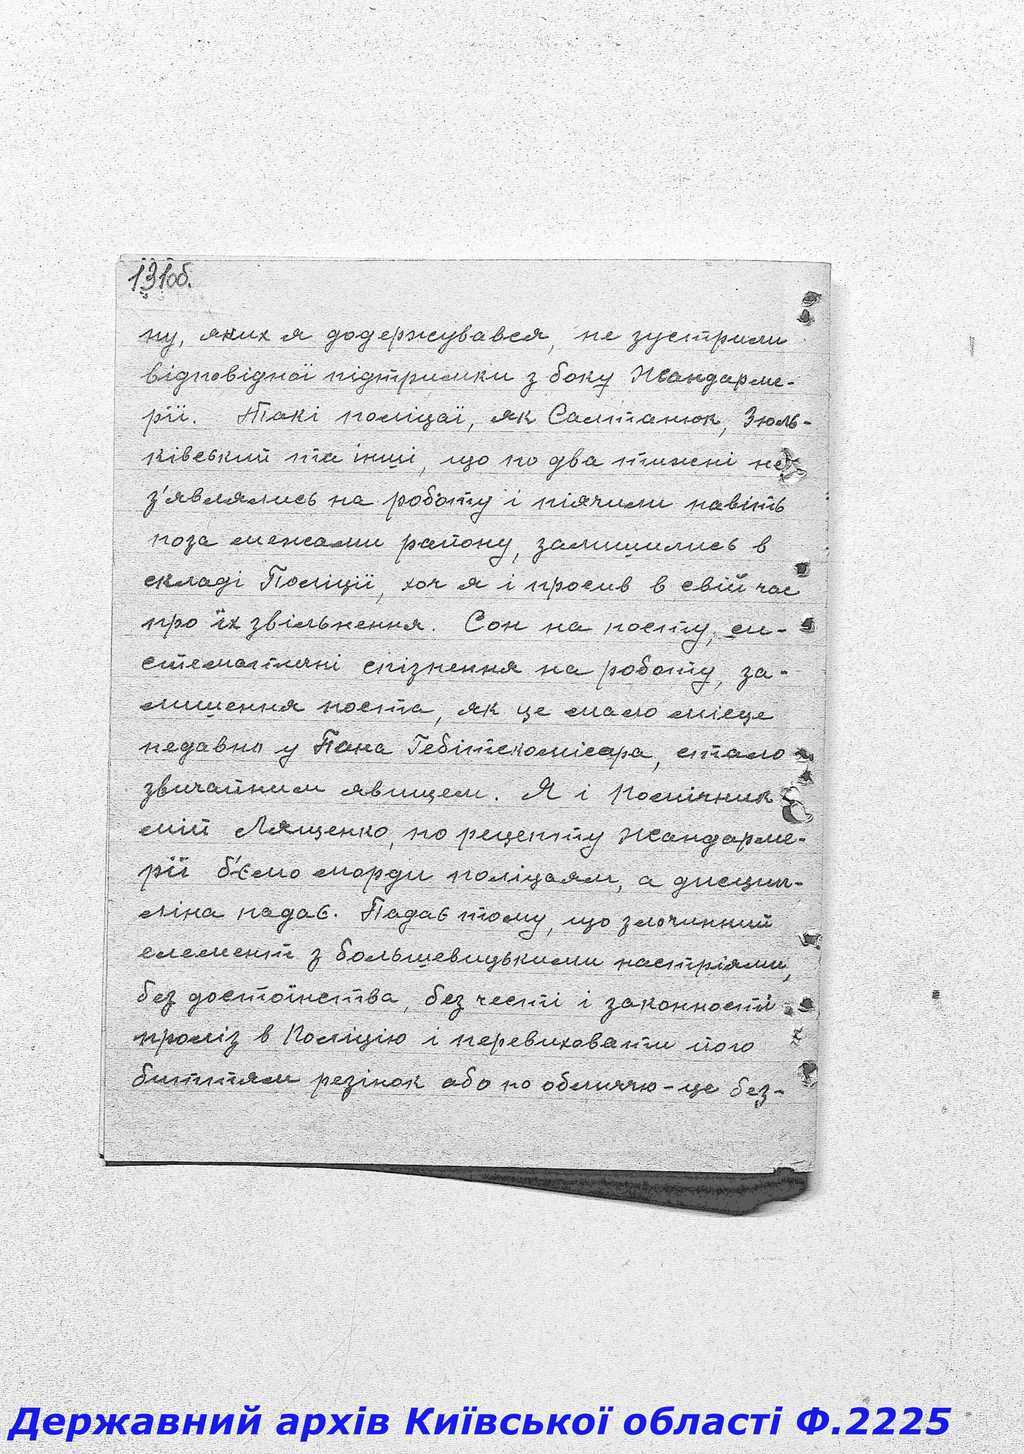 131об.
ну, яких я додержувався, не зустрили
відповідної підтримки з боку Жандарме-
рії. Такі поліцаї, як Салтанюк, Зюль-
ківський та інші, що по два тижні не
з'являлись на роботу і піячили навіть
поза межами району, залишились в
складі Поліції, хоч я і просив в свій час
про їх звільнення. Сон на посту, си-
стематичні спізнення на роботу, за-
лишення поста, як це мало місце
недавно у Пана Гебітскомісара, стало
звичайним явищем. Я і Помічник
мій Лященко, по рецепту Жандарме-
рії б'ємо морди поліцаям, а дисцип-
ліна падає. Падає тому, що злочинний
елемент з большевицькими настріями,
без достоїнства, без честі і законності
проліз в Поліцію і перевиховати його
биттям резінок або по обличчю - це без-
Державний архів Київської області Ф.2225